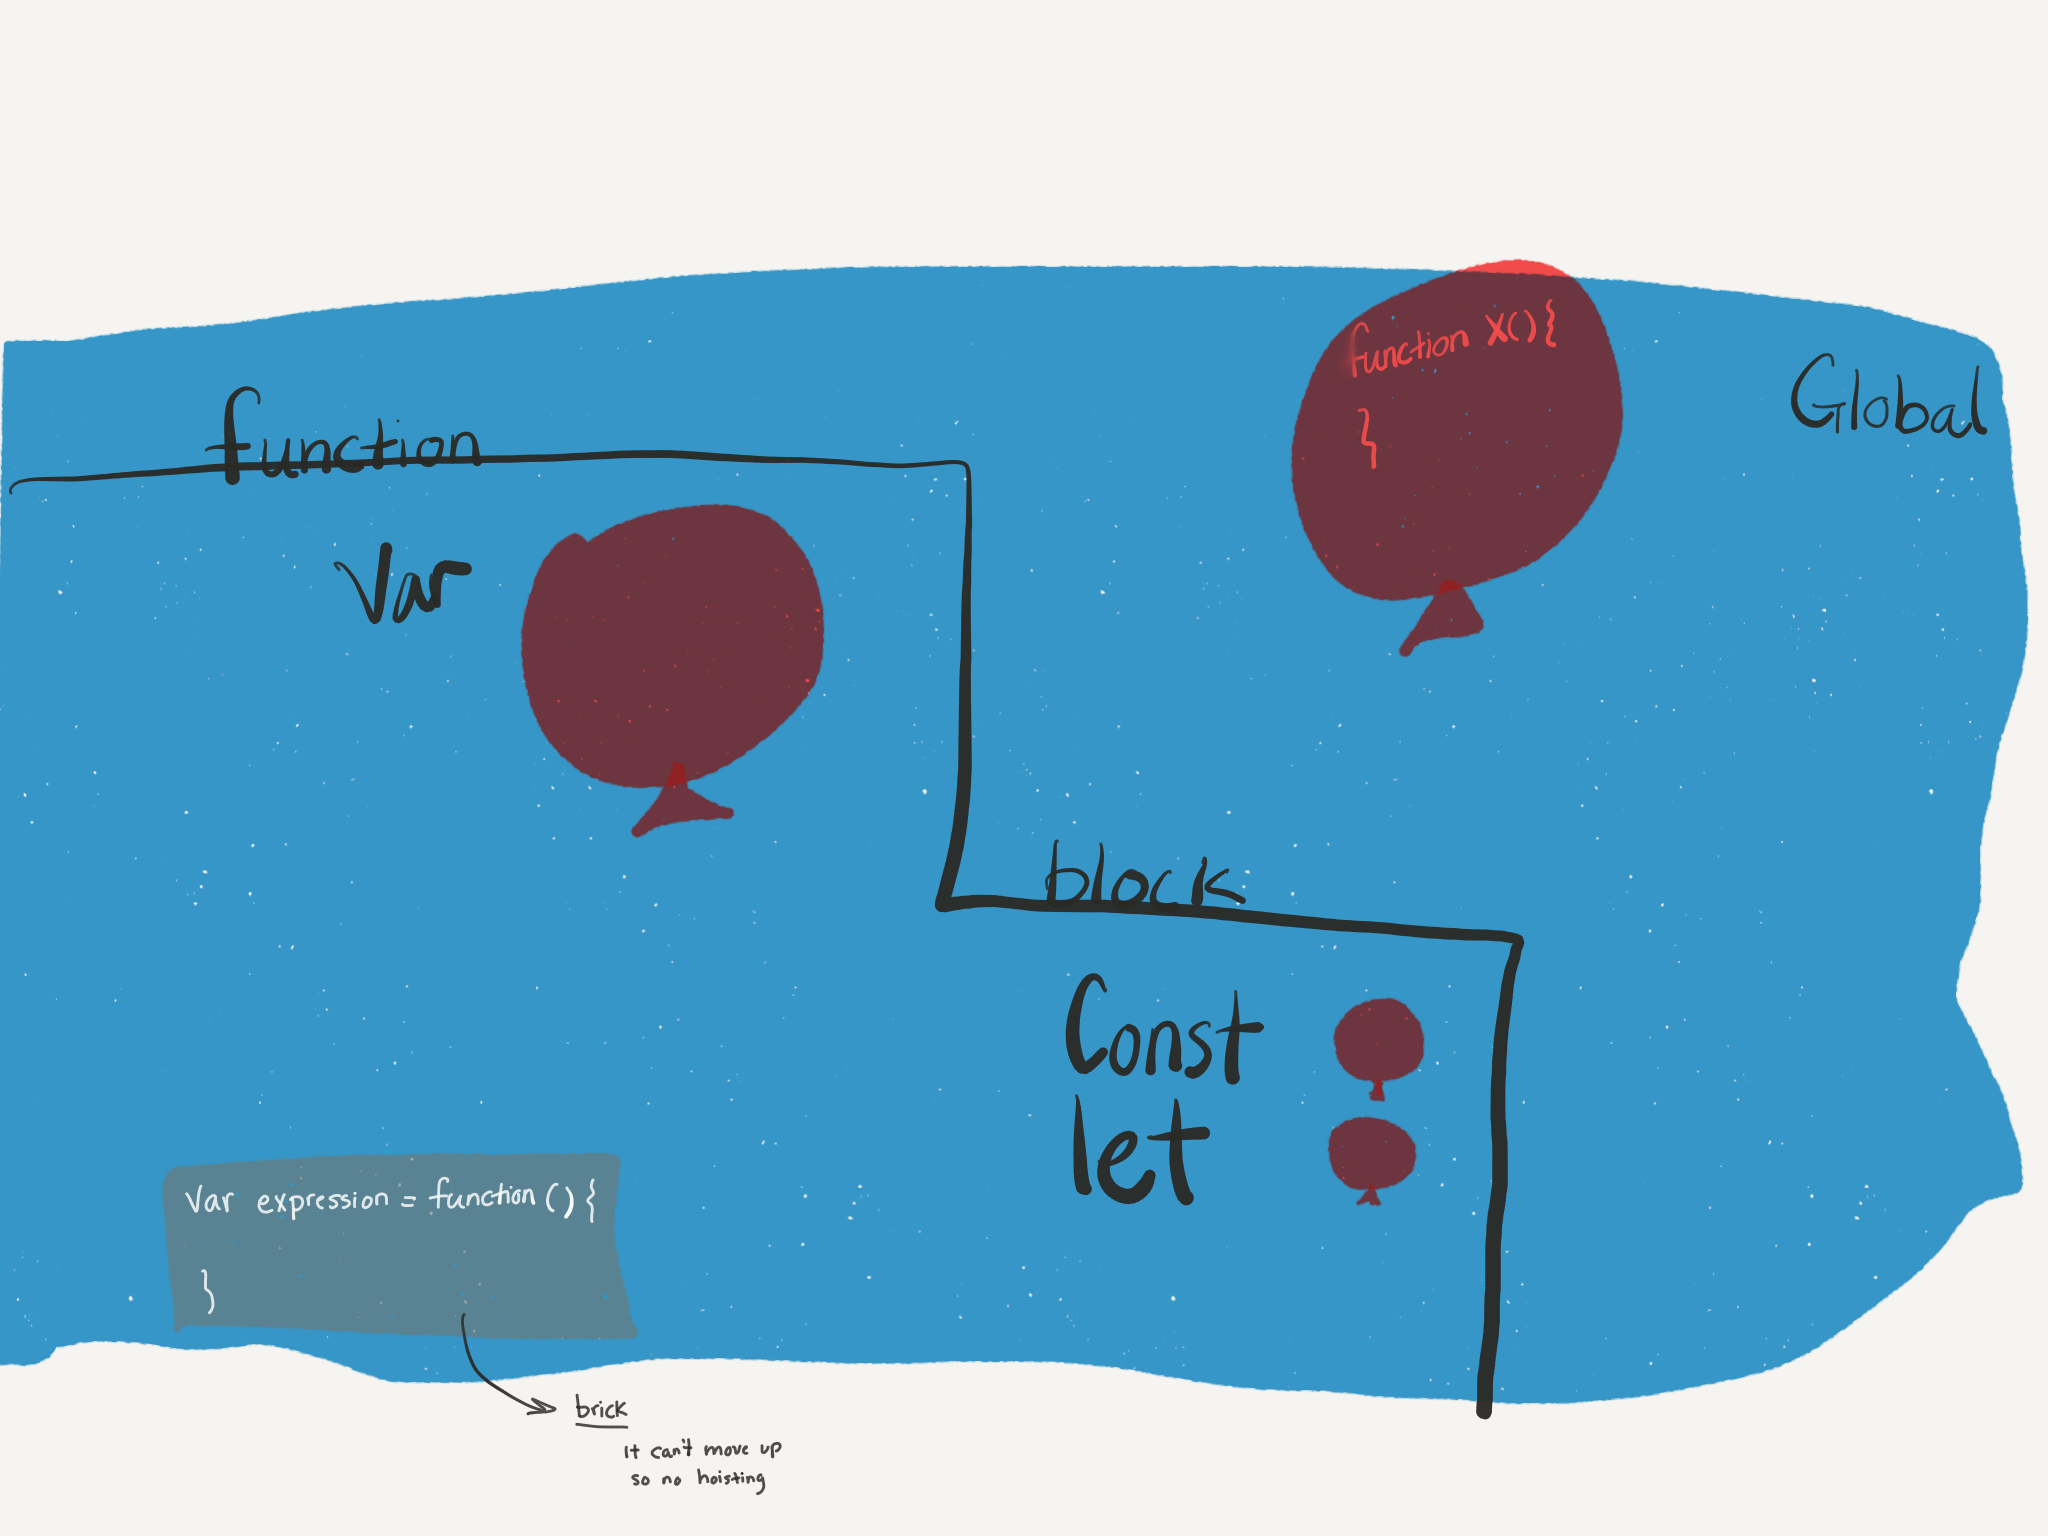 function X(){
}
Global
function
Var
block
Const
let
Var expression = function(){
}
brick
It can't move up
so no hoisting